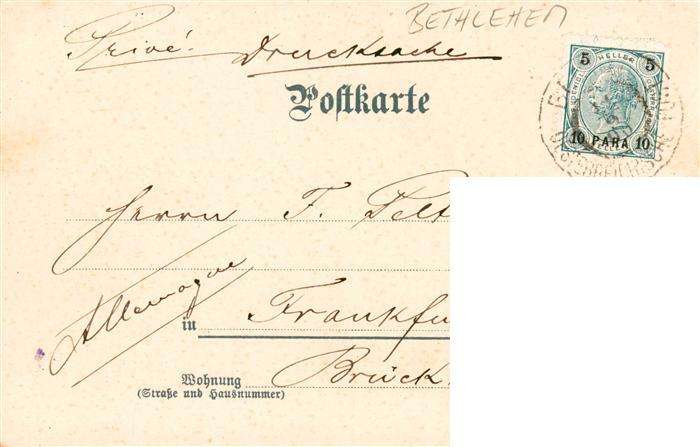 BETHLEHEM
Privé. Drucksache
Postkarte
5 HELLER 5
10 PARA 10
Herrn F. Pelt
Allemagne
in Frankfu
Wohnung Brück
(Straße und Hausnummer)